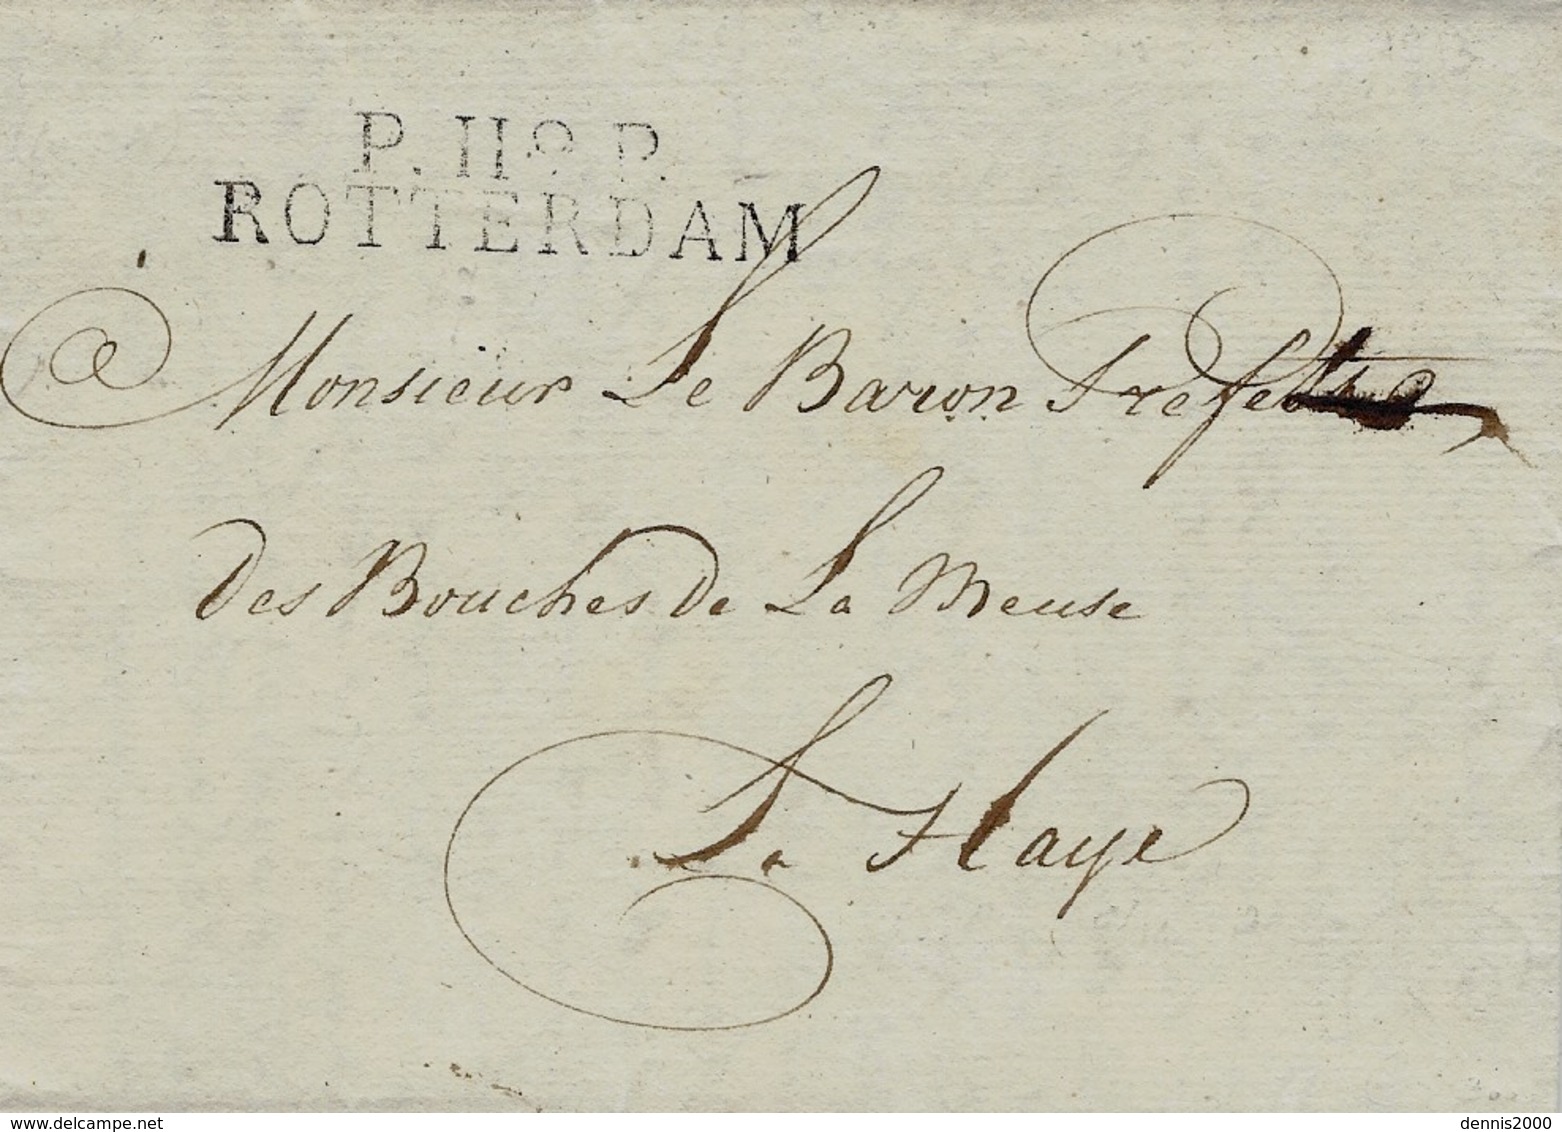 P. 119. P.
ROTTERDAM
a Monsieur Le Baron Prefet
des Bouches de La Meuse
La Haye
delcampe.net
dennis2000